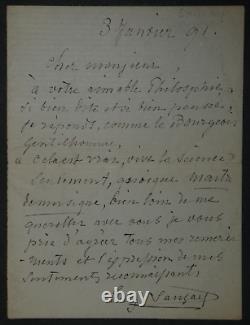 3 Janvier 91.
cher monsieur,
à votre aimable Philosophie,
si bien dite et si bien pensée,
je réponds, comme le Bourgeois
Gentilhomme,
a cela est vrai, vive la Science
Sentiment, quoique
de musique, bien loin de me
quereller avec vous je vous
prie d'agréer tous mes remerci
ments et l'expression de mes
sentiments reconnaissants,